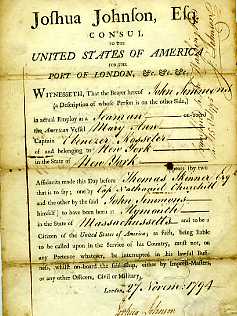 Joshua Johnson, Esq.
CONSUL
TO THE
UNITED STATES OF AMERICA
FOR THE
PORT OF LONDON, &c. &c. &c.
WITNESSETH, That the Bearer hereof John Simmons
(a Description of whose Person is on the other Side,)
in actual Employ as a Seaman on-board
the American Vessel Mary Ann
Captain Ebenezer
of and belonging to New York
in the State of New York
by two
Affidavits made this Day before Thomas Skinner Esq
that is to say; one by Capt Nathaniel Churchill
and the other by John Simmons
himself; to have been born at Plymouth
in the State of Massachussetts and to be a
Citizen of the United States of America; as such, being liable
to be called upon in the Service of his Country, must not, on
any Pretence whatever, be interrupted in his lawful Business,
whilst on-board the said Ship, either by Impress-Masters,
or any other Officers, Civil or Military.
London, 27 Novem: 1794
Joshua Johnson